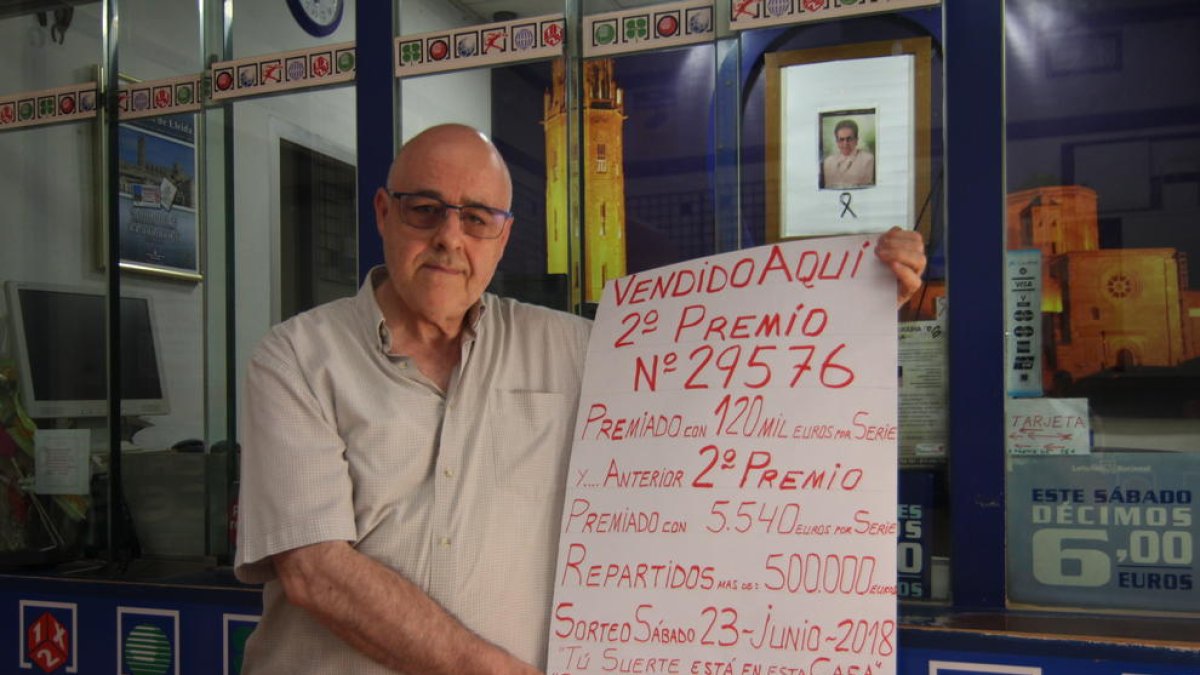 VENDIDO AQUÍ
2º PREMIO
Nº 29576
PREMIADO CON 120 MIL EUROS POR SERIE
Y.... ANTERIOR 2º PREMIO
PREMIADO CON 5.540 EUROS POR SERIE
REPARTIDOS MAS DE: 500.000 EUROS
SORTEO SÁBADO 23-JUNIO-2018
"TÚ SUERTE ESTÁ EN ESTA CASA"
VISA
TARJETA
ESTE SÁBADO
DÉCIMOS
6,00
EUROS
1X2